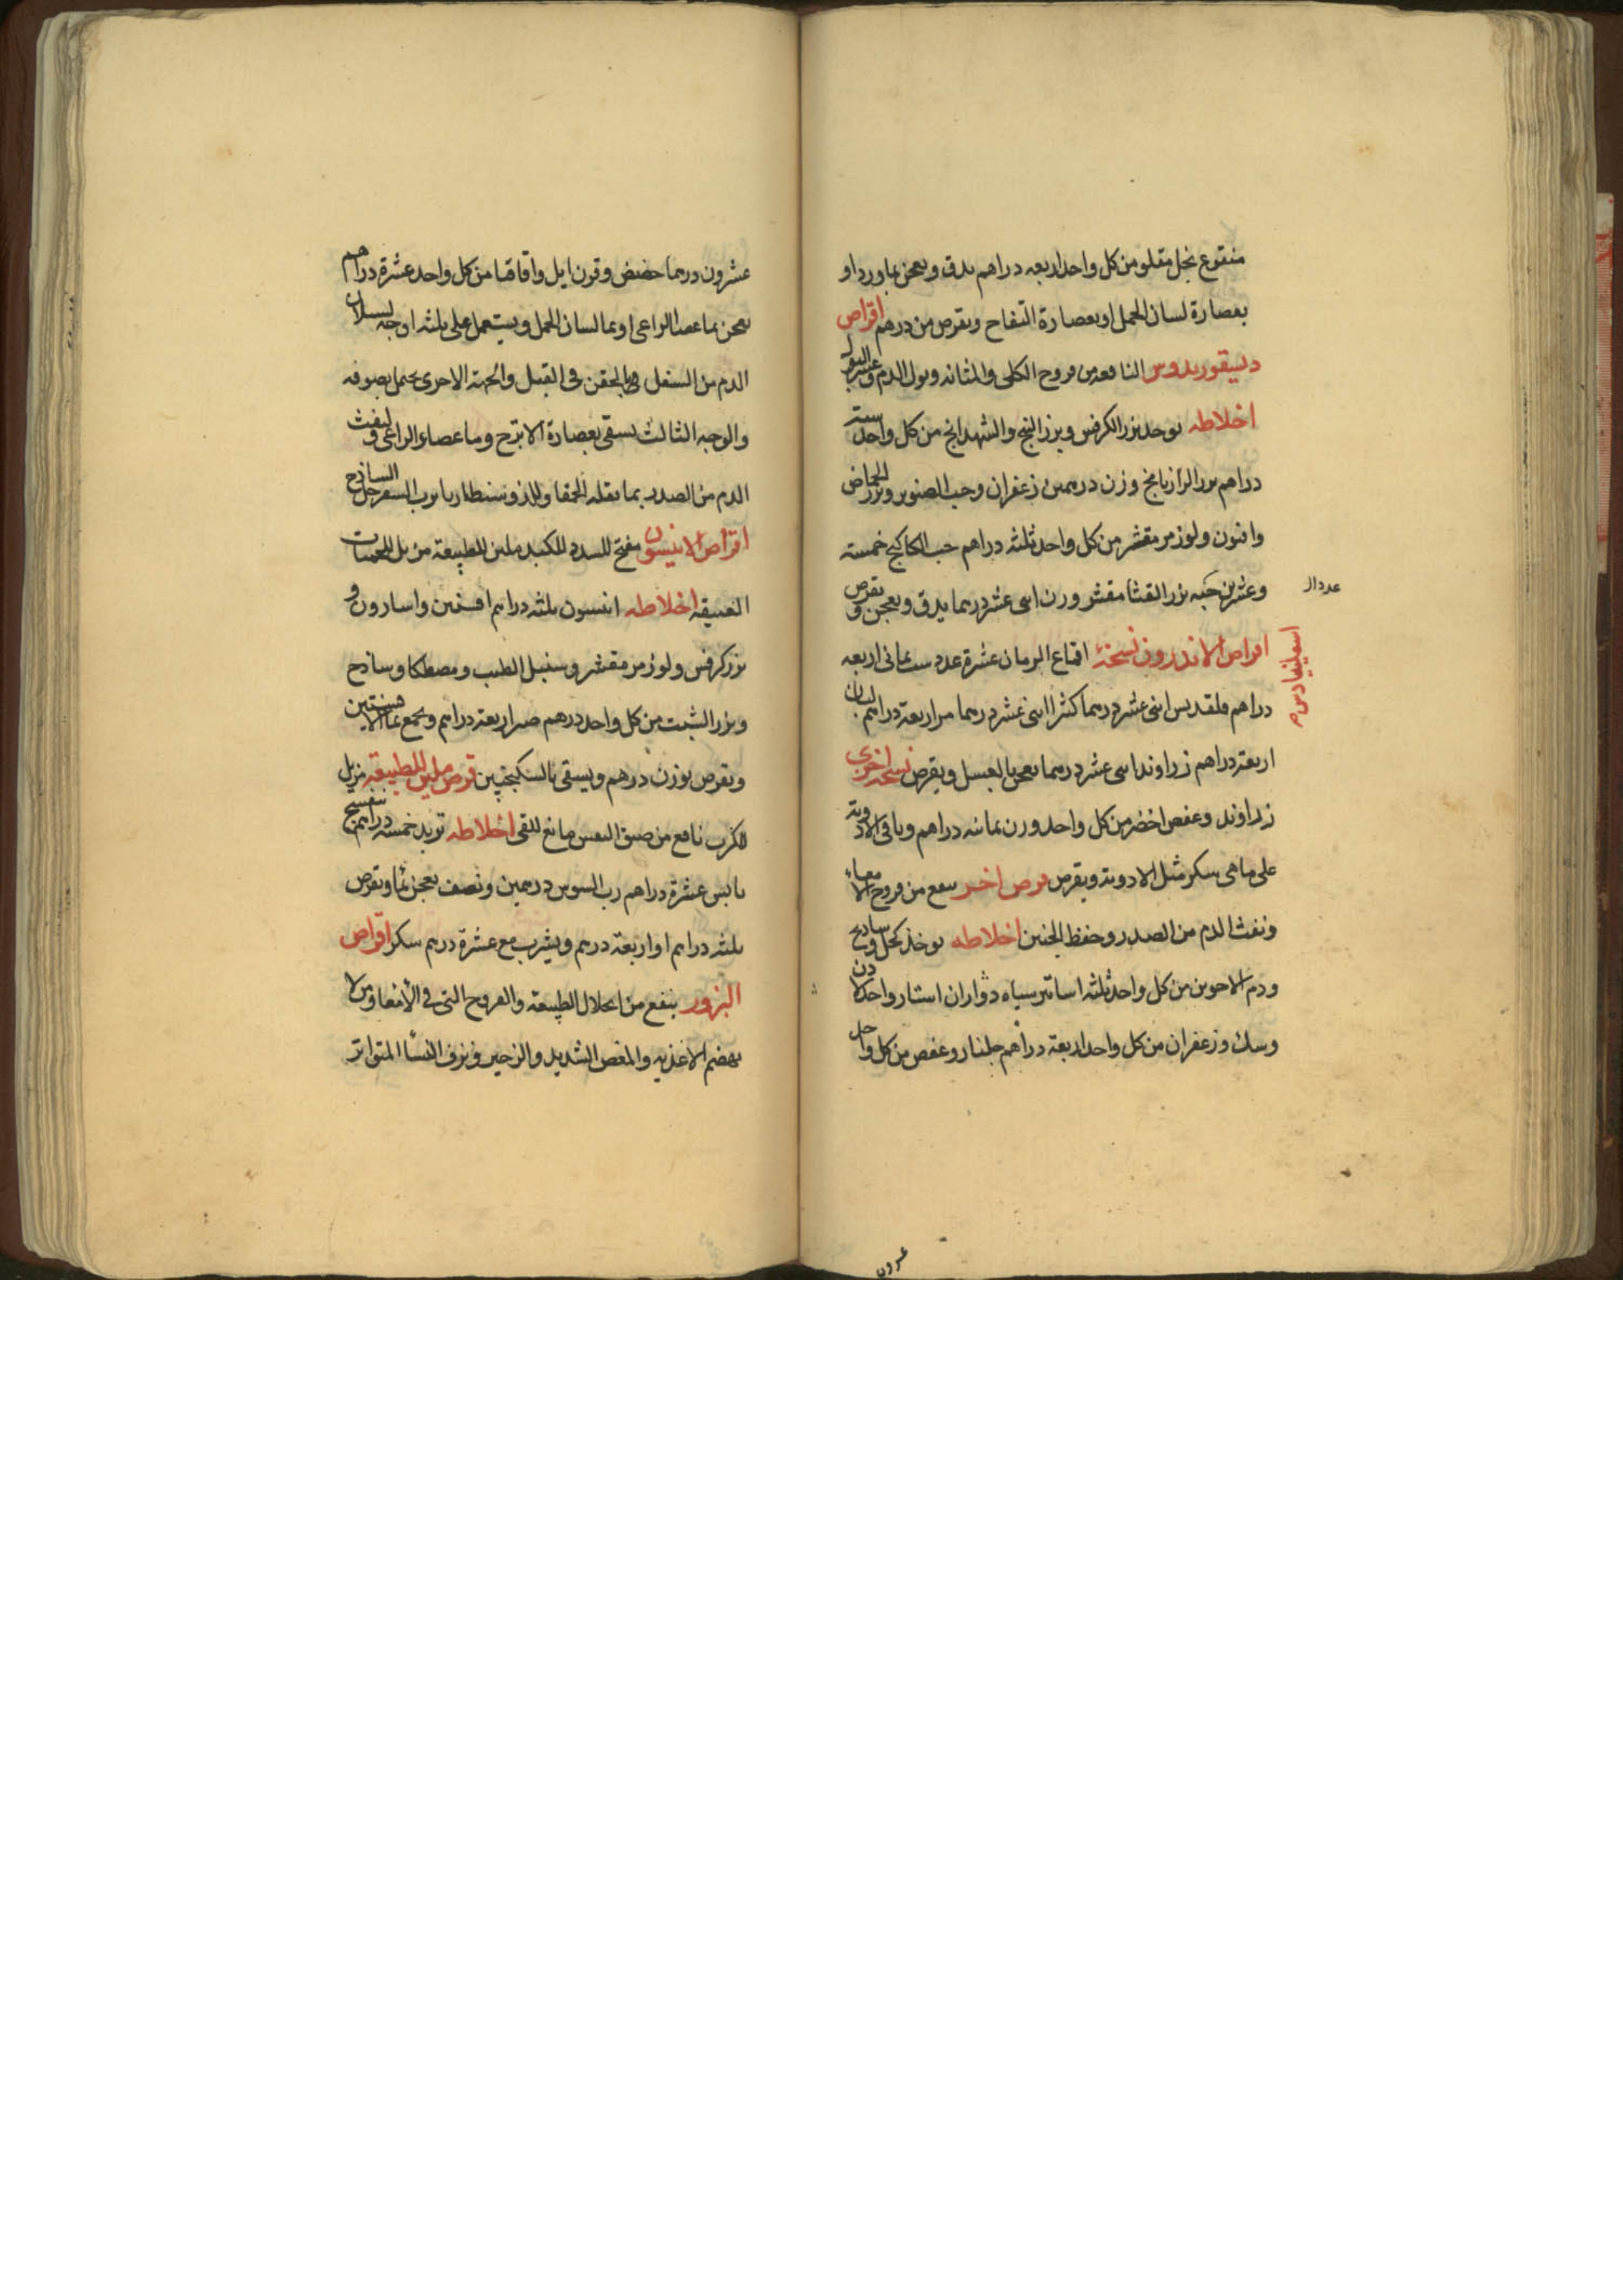 منقوع بخل مقلو من كل واحد اربعه دراهم يدق ويعجن بماورد او
بعصارة لسان الحمل او بعصارة التفاح ويقرص من درهم اقراص
النافعه من قروح الكلى والمثانه وبول الدم وعسر البول
اخلاطه يوخذ بزر الكرفس وبزر البنج والشهدانج من كل واحد ستة
دراهم بزر الرازيانج وزن درهمين زعفران وحب الصنوبر وبزر الحماض
وافيون ولوز مر مقشر من كل واحد ثلثه دراهم حب الكاكنج خمسة
وعشرين حبه بزر القثا مقشر وزن اثنى عشر درهما يدق ويعجن ويقرص
اقراص الاندرون نسخة اقماع الرمان عشرة عدد شب يمانى اربعه
دراهم قلقديس اثنى عشر درهما كثيرا اثنى عشر درهما مر اربعة دراهم لبان
اربعة دراهم زراوند اثنى عشر درهما يعجن بالعسل ويقرص نسخه اخرى
زراوند وعفص اخضر من كل واحد وزن ثمانيه دراهم وباقى الادوية
على ما هى سكر مثل الادوية ويقرص قرص اخر ينفع من قروح الامعاء
ونفث الدم من الصدر وحفظ الجنين اخلاطه يوخذ كحل وساذج
ودم الاخوين من كل واحد ثلثه اساتير استار واحد
وسك وزعفران من كل واحد اربعة دراهم جلنار وعفص من كل واحد
عشرون درهما حضض وقرن ايل واقاقيا من كل واحد عشرة دراهم
يعجن بماعصا الراعى او بما لسان الحمل ويستعمل على ثلثه اوجه لسيلان
الدم من السفل بالحقن فى القبل والجهة الاخرى يحتمل بصوفه
والوجه الثالث يسقى بعصارة الاترج وما عصاء الراعى ولنفث
الدم من الصدر بما بقلة الحمقا برب السفرجل الساذج
اقراص الانيسون مفتح للسدد للكبد ملين للطبيعة مزيل للحميات
العتيقه اخلاطه انيسون ثلثه دراهم افسنتين واسارون و
بزر كرفس ولوز مر مقشر وسنبل الطيب ومصطكا وساذج
وبزر الشبت من كل واحد درهم صبر اربعة دراهم ويجمع بما الافسنتين
ويقرص بوزن درهم ويسقى بالسكنجبين قرص ملين للطبيعة مزيل
للكرب نافع من ضيق النفس مانع للقى اخلاطه تربد خمسه دراهم بنفسج
يابس عشرة دراهم رب السوس درهمين ونصف يعجن بما ويقرص
ثلثه دراهم او اربعة درهم ويشرب مع عشرة درهم سكر اقراص
البزور ينفع من انحلال الطبيعة والقروح التى فى الامعا ومن لا
يهضم الاغذيه والمغص الشديد والزحير ونزف النسا المتواتر